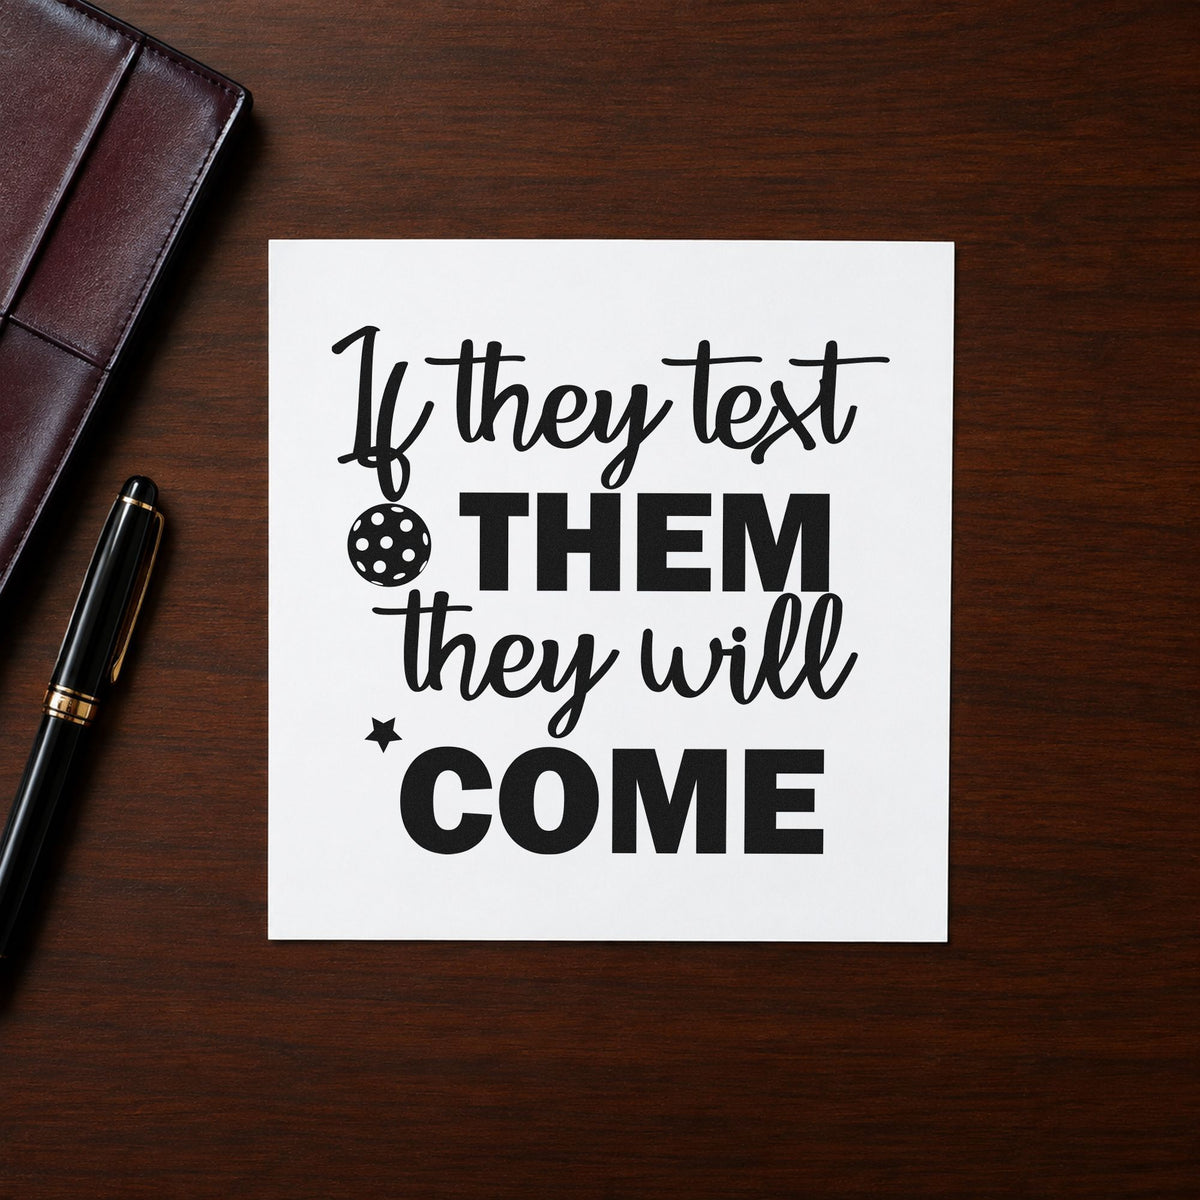 If they text
THEM
they will
COME